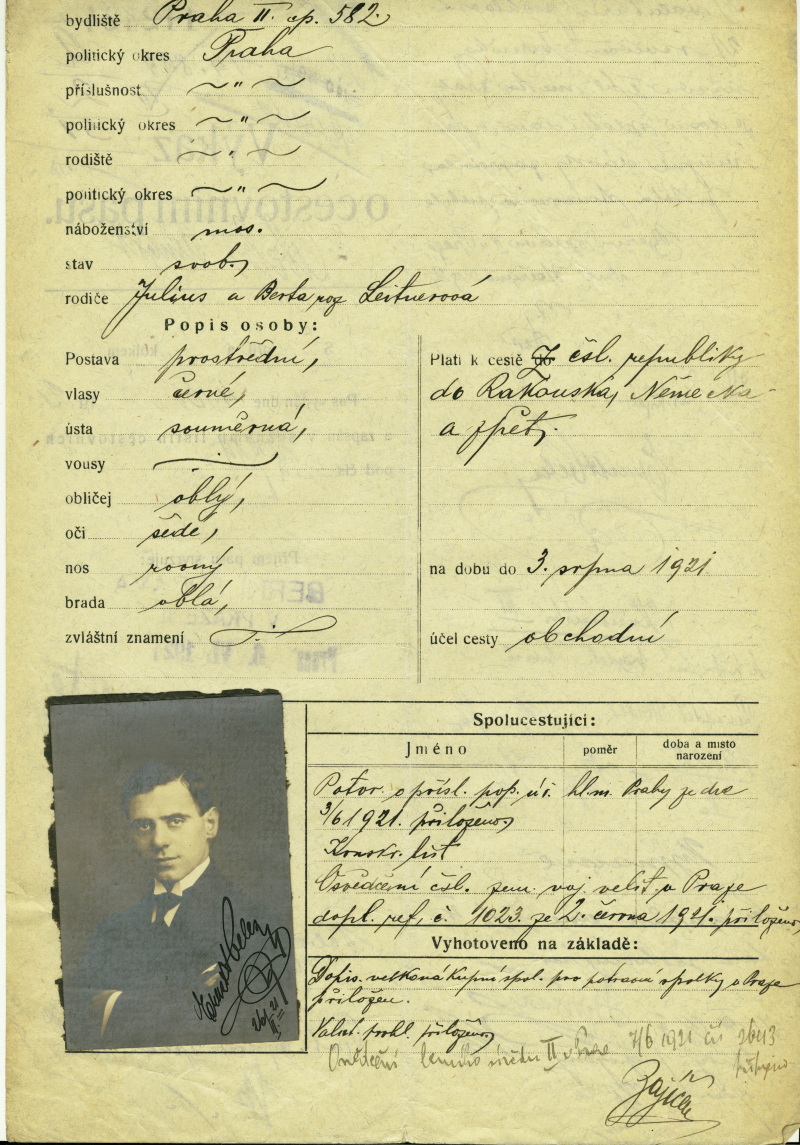 bydliště Praha II. čp. 582.
politický okres Praha
příslušnost ~ " ~
politický okres ~ " ~
rodiště ~ " ~
politický okres ~ " ~
náboženství mos.
stav svob.
rodiče Julius a Berta roz Leitnerová
Popis osoby:
Postava prostřední,
vlasy černé,
ústa souměrná,
vousy —
obličej oblý,
oči šedé,
nos rovný
brada oblá,
zvláštní znamení —
Platí k cestě do Z čsl. republiky
do Rakouska, Německa
a zpět.
na dobu do 3. srpna 1921
účel cesty obchodní
Spolucestující:
Jméno poměr doba a místo narození
Potvr. o přísl. pop. úř. hl. m. Prahy ze dne
3/6 1921. přiloženo,
Konskr. list
Osvědčení čsl. zem. voj. velit. v Praze
dopl. ref. č. 1023 ze 2. června 1921. přiloženo,
Vyhotoveno na základě:
Dopis. velkonákupní spol. pro potravní spolky v Praze
přiložen.
přiložen,
Osvědčení berního úřadu II v Praze 7/6 1921 čís 2643
Zajíček